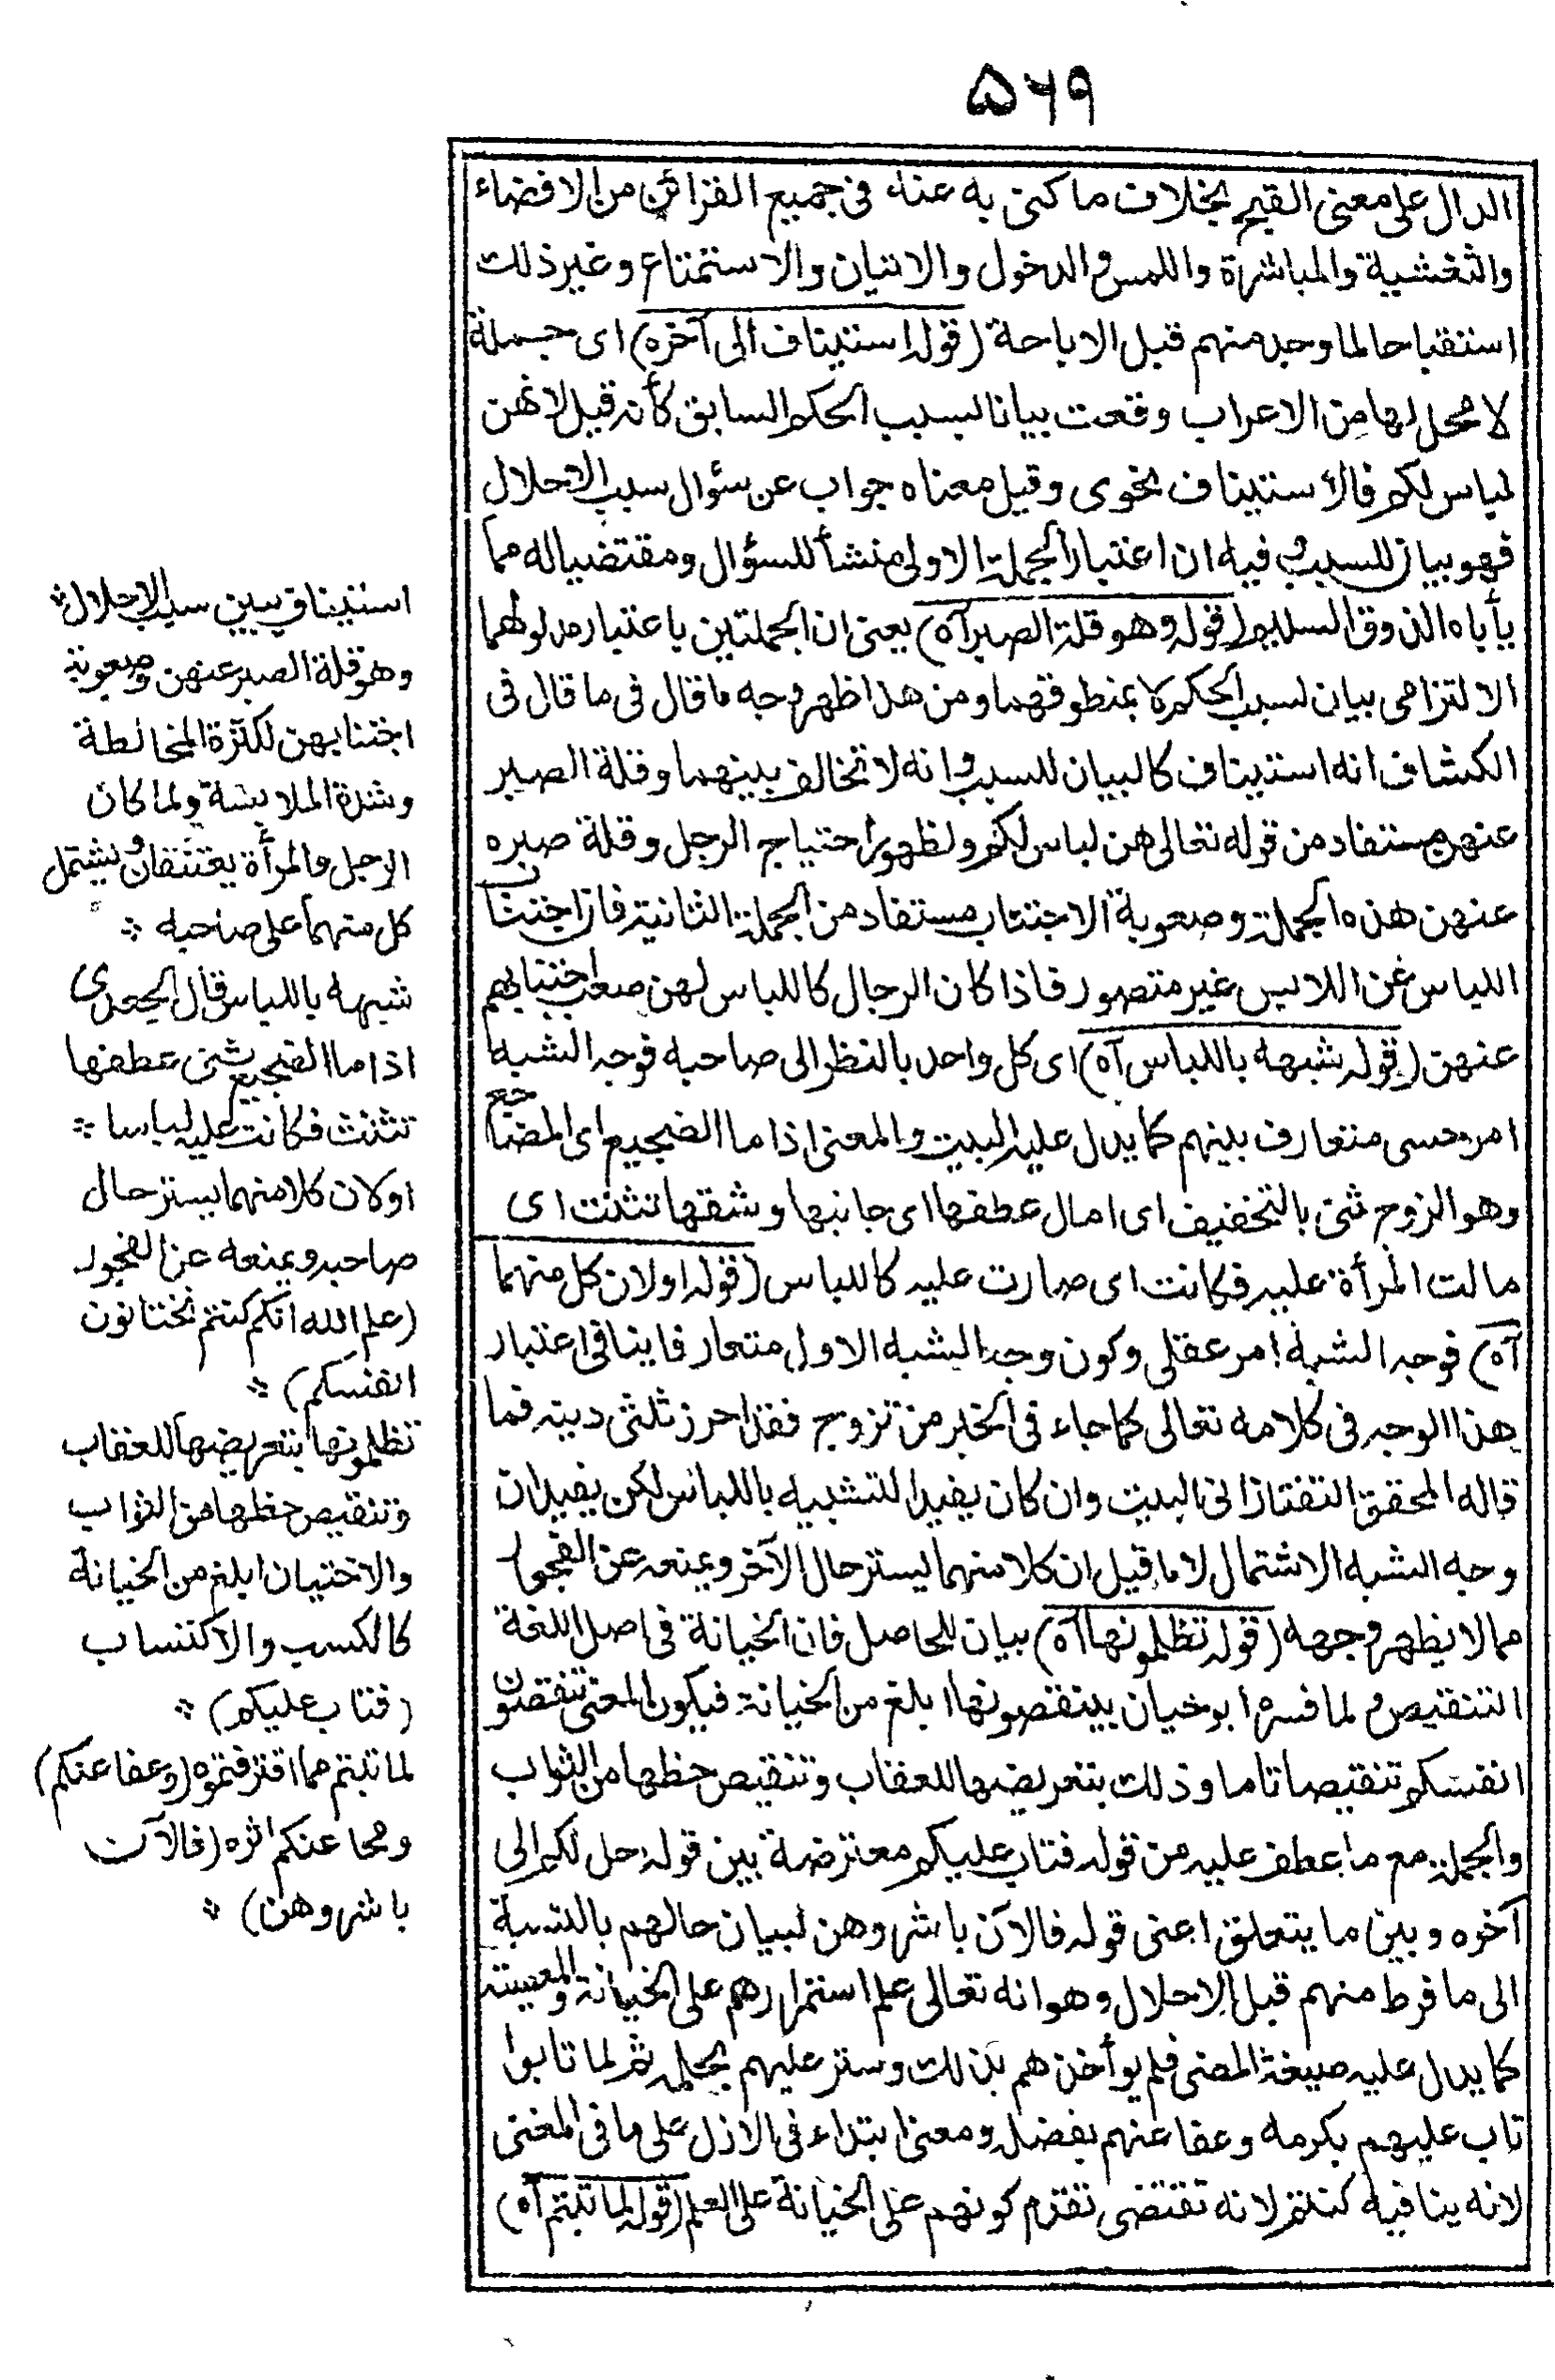 ٥٦٩
الدال على معنى القبح بخلاف ما كنى به عنه فى جميع القرائن من الافضاء
والتغشية والمباشرة واللمس والدخول والاتيان والاستمتاع وغير ذلك
استقباحا لما وجد منهم قبل الاباحة (قوله استيناف الى آخره) اى جملة
لا محل لها من الاعراب وقعت بيانا لسبب الحكم السابق كأنه قيل لانهن
لباس لكم فالاستيناف نحوى وقيل معناه جواب عن سؤال سبب الاحلال
فهو بيان للسبب وفيه ان اعتبار الجملة الاولى منشأ للسؤال ومقتضيا له مما
يأباه الذوق السليم (قوله وهو قلة الصبر آه) يعنى ان الجملتين باعتبار مدلولهما
الالتزامى بيان لسبب الحكم لا بمنطوقهما ومن هذا ظهر وجه ما قال فى ما قال فى
الكشاف انه استيناف كالبيان للسبب وانه لا تخالف بينهما وقلة الصبر
عنهن مستفاد من قوله تعالى هن لباس لكم ولظهور احتياج الرجل وقلة صبره
عنهن هذه الجملة وصعوبة الاجتناب مستفاد من الجملة الثانية فان اجتناب
اللباس عن اللابس غير متصور فاذا كان الرجال كاللباس لهن صعب اجتنابهم
عنهن (قوله شبهه باللباس آه) اى كل واحد بالنظر الى صاحبه فوجه الشبه
امر حسى متعارف بينهم كما يدل عليه البيت والمعنى اذا ما الضجيع اى المضاجع
وهو الزوج ثنى بالتخفيف اى امال عطفها اى جانبها وشقها تثنت اى
مالت المرأة عليه فكانت اى صارت عليه كاللباس (قوله او لان كل منهما
آه) فوجه الشبه امر عقلى وكون وجه الشبه الاول متعارفا ينافى اعتبار
هذا الوجه فى كلامه تعالى كما جاء فى الخبر من تزوج فقد احرز ثلثى دينه فما
قاله المحقق التفتازانى البيت وان كان يفيد التشبيه باللباس لكن يفيد ان
وجه الشبه الاشتمال لا ما قيل ان كلا منهما ليستر حال الآخر ويمنعه عن الفجور
مما لا يظهر وجهه (قوله تظلمونها آه) بيان للحاصل فان الخيانة فى اصل اللغة
التنقيص ولما فسره ابو حيان بينقصونها ابلغ من الخيانة فيكون المعنى تنقصون
انفسكم تنقيصا تاما وذلك بتعريضها للعقاب وتنقيص حظها من الثواب
والجملة مع ما عطف عليه من قوله فتاب عليكم معترضة بين قوله احل لكم الى
آخره وبين ما يتعلق اعنى قوله فالآن باشروهن لبيان حالهم بالنسبة
الى ما فرط منهم قبل الاحلال وهو انه تعالى علم استمرارهم على الخيانة والمعصية
كما يدل عليه صيغة المضى فلم يوأخذهم بذلك وستر عليهم بحلمه ثم لما تابوا
تاب عليهم بكرمه وعفا عنهم بفضله ومعنى ابتداء فى الازل على ما فى المغنى
لانه ينافيه كنتم لانه تقتضى تقدم كونهم على الخيانة على العلم (قوله لما تبتم آه)
استيناف يبين سبب الاحلال
وهو قلة الصبر عنهن وصعوبة
اجتنابهن لكثرة المخالطة
وشدة الملابسة ولما كان
الرجل والمرأة يعتنقان ويشتمل
كل منهما على صاحبه
شبهه باللباس قال الجعدى
اذا ما الضجيع ثنى عطفها
تثنت فكانت عليه لباسا
او لان كلا منهما يستر حال
صاحبه ويمنعه عن الفجور
(علم الله انكم كنتم تختانون
انفسكم)
تظلمونها بتعريضها للعقاب
وتنقيص حظها من الثواب
والاختيان ابلغ من الخيانة
كالكسب والاكتساب
(فتاب عليكم)
لما تبتم مما اقترفتموه (وعفا عنكم)
ومحا عنكم اثره (فالآن
باشروهن)